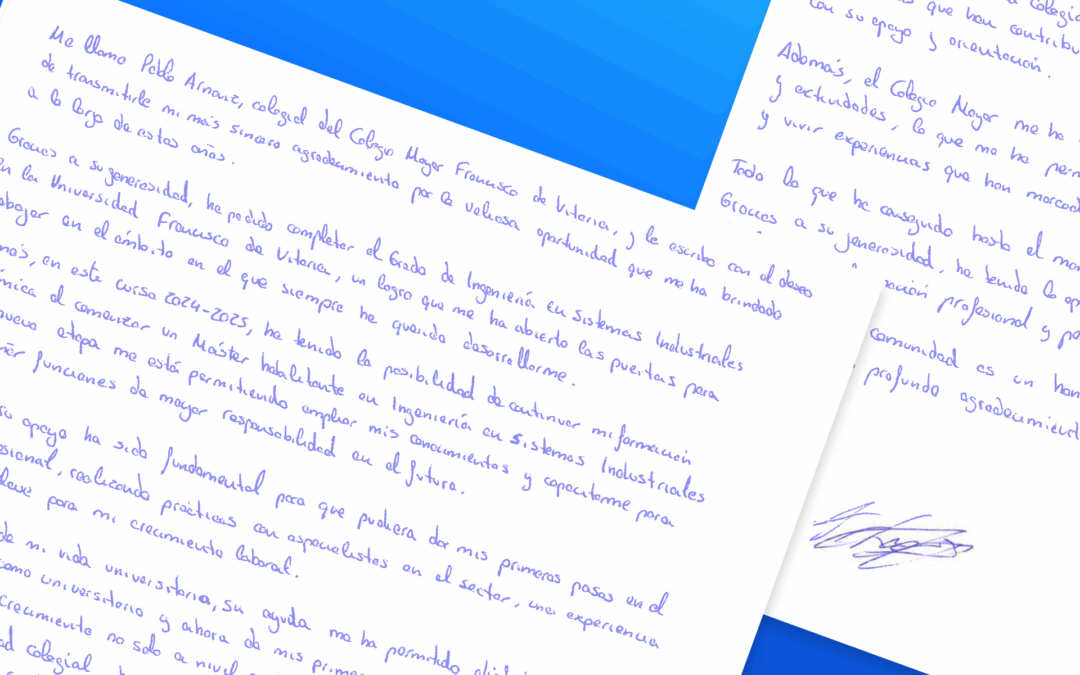 Me llamo Pablo Arnaiz, colegial del Colegio Mayor Francisco de Vitoria, y le escribo con el deseo
de transmitirle mi más sincero agradecimiento por la valiosa oportunidad que me ha brindado
a lo largo de estos años.
Gracias a su generosidad, he podido completar el Grado de Ingeniería en Sistemas Industriales
en la Universidad Francisco de Vitoria, un logro que me ha abierto las puertas para
abajar en el ámbito en el que siempre he querido desarrollarme.
más, en este curso 2024-2025, he tenido la posibilidad de continuar mi formación
émica al comenzar un Máster habilitante en Ingeniería en Sistemas Industriales
nueva etapa me está permitiendo ampliar mis conocimientos y capacitarme para
ñar funciones de mayor responsabilidad en el futuro.
su apoyo ha sido fundamental para que pudiera dar mis primeros pasos en el
sional, realizando prácticas con especialistas en el sector, una experiencia
clave para mi crecimiento laboral.
de mi vida universitaria, su ayuda me ha permitido
como universitario y ahora de mis prime
crecimiento no solo a nivel
ad colegial
colegia
que han contribu
con su apoyo y orientación.
Además, el Colegio Mayor me ha
y actividades, lo que me ha perm
y vivir experiencias que han marcad
Todo lo que he conseguido hasta el mom
Gracias a su generosidad, he tenido la op
ación profesional y pe
comunidad es un hon
profundo agradecimient